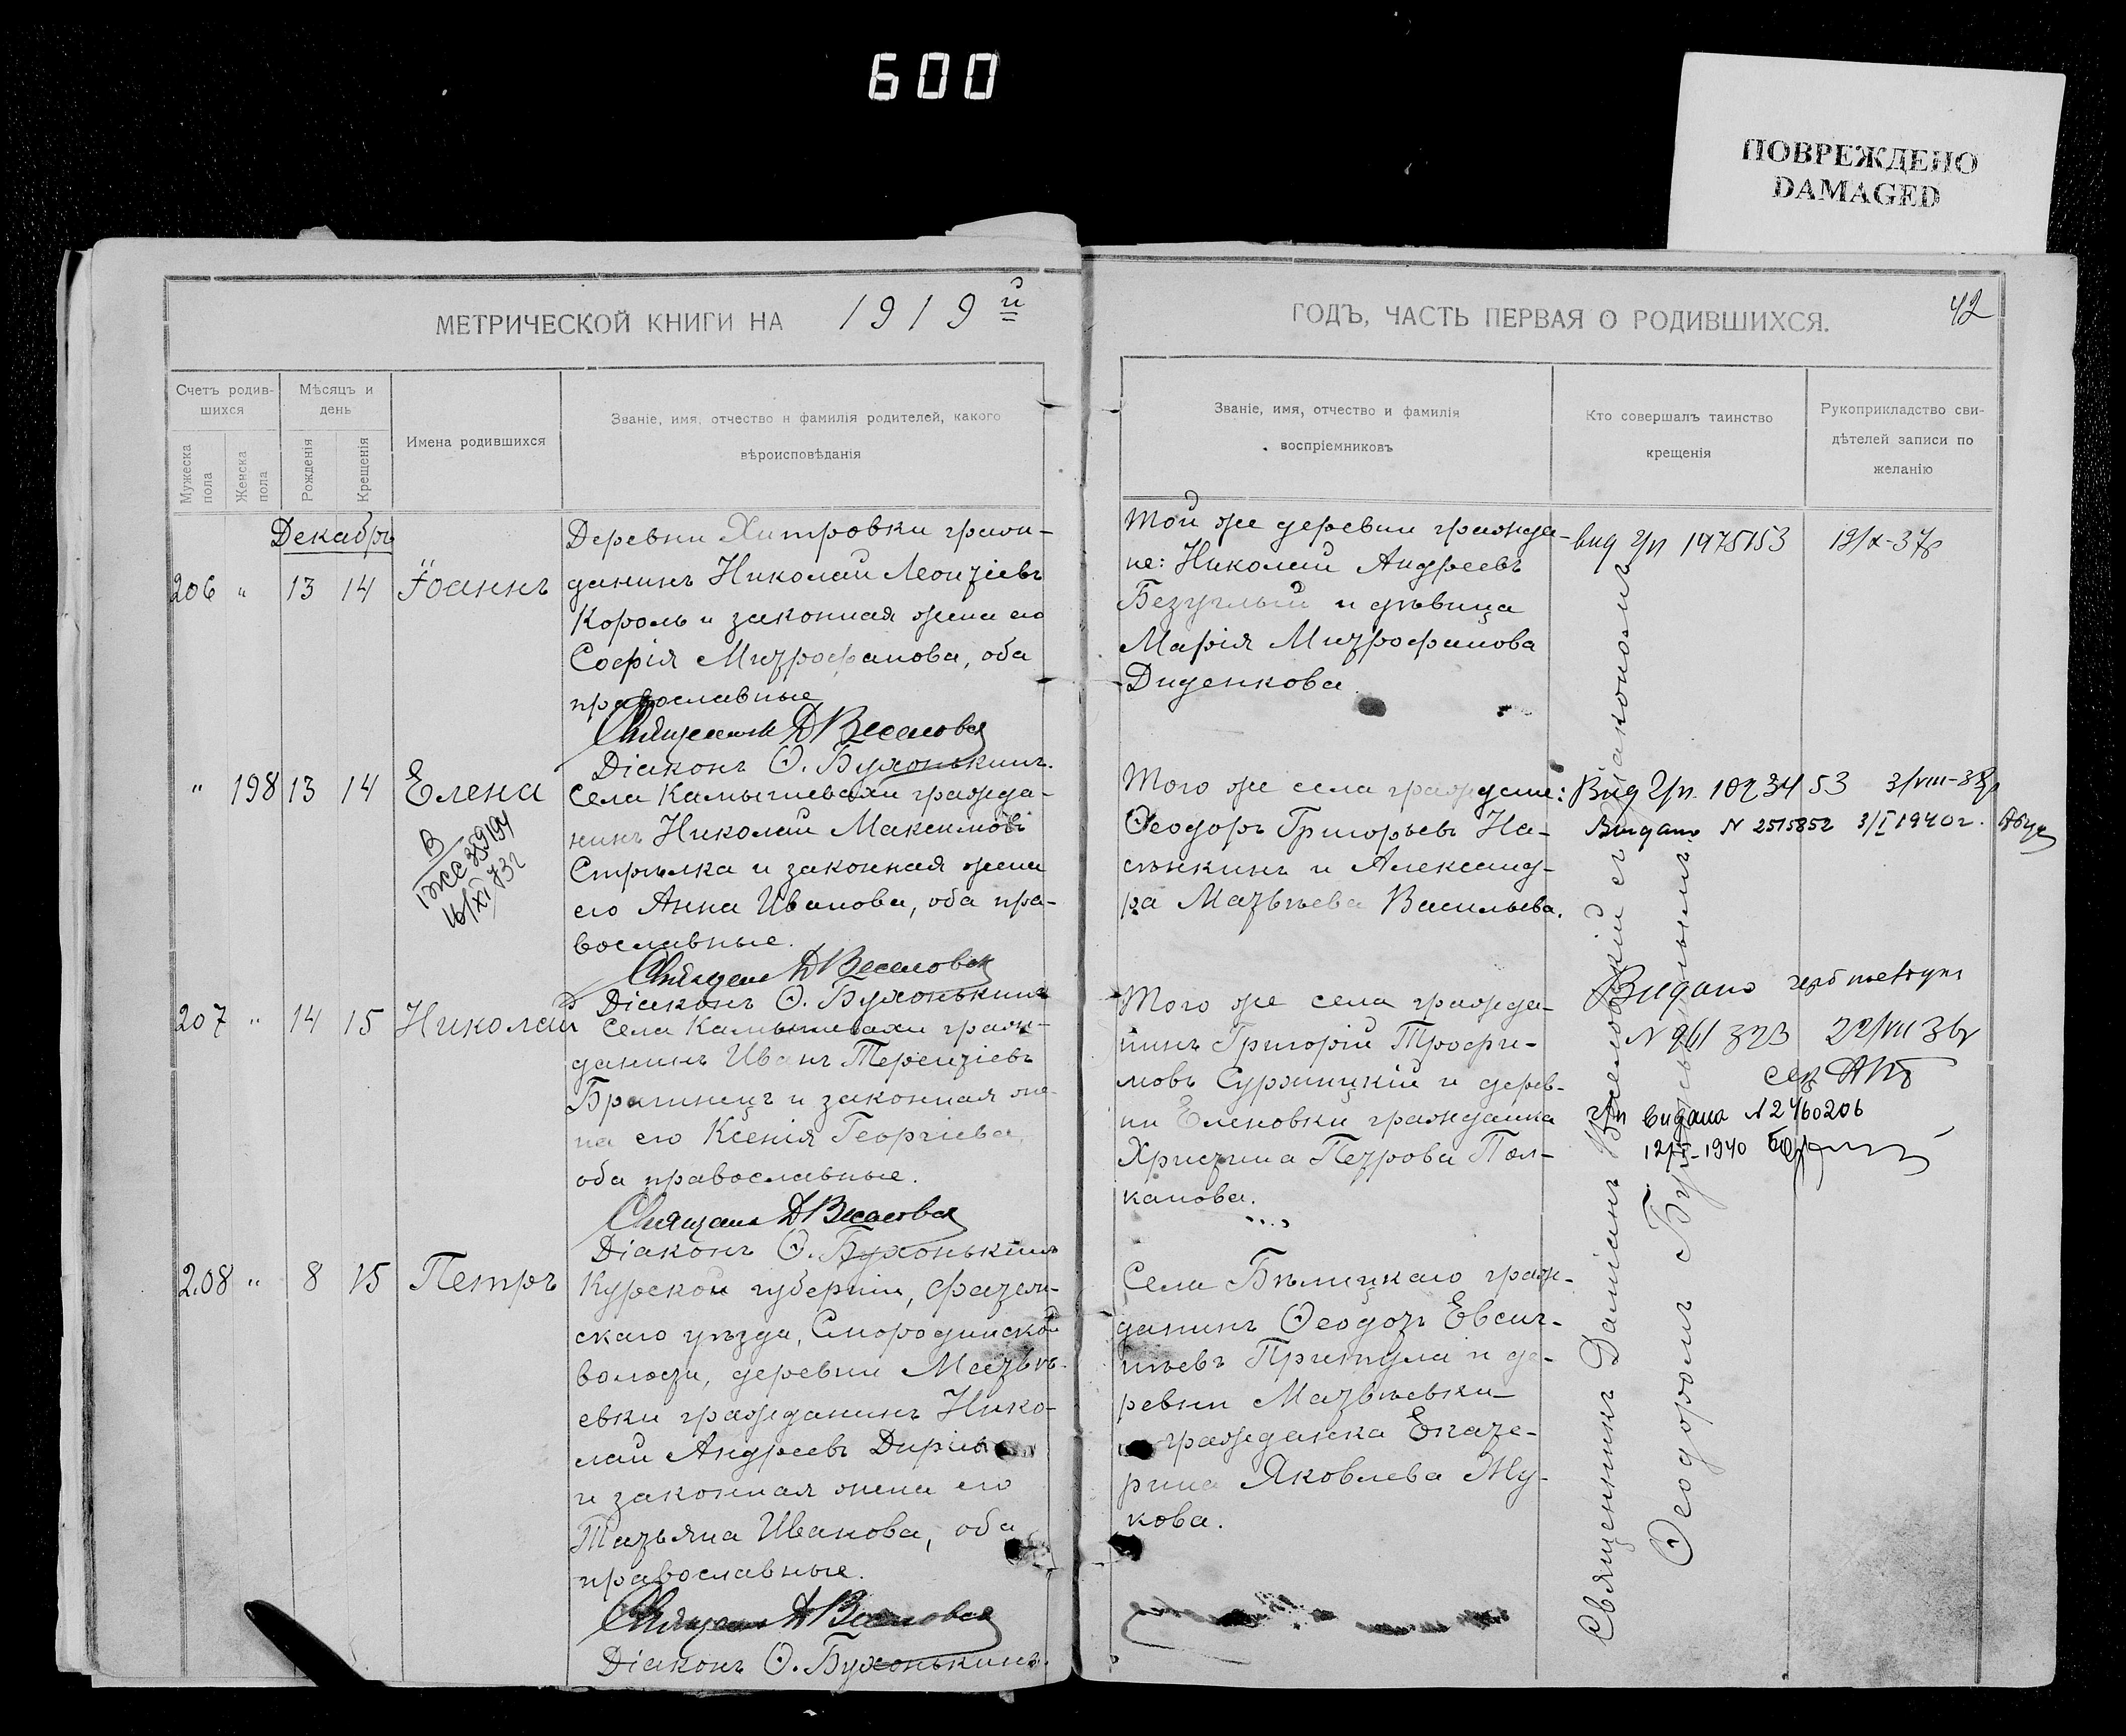 600
ПОВРЕЖДЕНО
DAMAGED
МЕТРИЧЕСКОЙ КНИГИ НА 1919й
ГОДЪ, ЧАСТЬ ПЕРВАЯ О РОДИВШИХСЯ.
42
Счетъ родив-
шихся
Мужеска
пола
Женска
пола
Мѣсяцъ и
день
Рожденія
Крещенія
Имена родившихся
Званіе, имя, отчество и фамилія родителей, какого
вѣроисповѣданія
Званіе, имя, отчество и фамилія
воспріемниковъ
Кто совершалъ таинство
крещенія
Рукоприкладство сви-
дѣтелей записи по
желанію
Декабрь
206 " 13 14 Іоаннъ
Деревни Хитровки граж-
данинъ Николай Леонтіевъ
Король и законная жена его
Софія Митрофанова, оба
православные
Священник Д Веселовск
Діаконъ Ѳ. Бухонькинъ.
Той же деревни гражда-
не: Николай Андреевъ
Безуглый и дѣвица
Марія Митрофанова
Диденкова
вид 1475153 19/X-37р
" 198 13 14 Елена
В
ГЖС 359194
16/XI 73г
Села Камышевахи гражда-
нинъ Николай Максимовъ
Стрѣлка и законная жена
его Анна Иванова, оба пра-
вославные.
Священ Д Веселовск
Діаконъ Ѳ. Бухонькинъ
Того же села граждане:
Ѳеодоръ Григорьевъ На-
сѣнкинъ и Александ-
ра Матвѣева Васильева.
Вид 1023453 3/VIII-38р
Видано N 2515852 3/I 1940г.
207 " 14 15 Николай
Села Камышевахи граж-
данинъ Иванъ Терентіевъ
Брагинецъ и законная же-
на его Ксенія Георгіева,
оба православные.
Священ Д Веселовск
Діаконъ Ѳ. Бухонькинъ
Того же села гражда-
нинъ Григорій Трофи-
мовъ Суржицкій и дерев-
ни Еленовки гражданка
Христина Петрова Пол-
канова.
Видано
N 961323 22/VII 36р
видана N 2460206
1940
208 " 8 15 Петръ
Курской губерніи, Фатеж-
скаго уѣзда, Смородинской
волости, деревни Матвѣ-
евки гражданинъ Нико-
лай Андреевъ
и законная жена его
Татьяна Иванова, оба
православные.
Священ Д Веселовск
Діаконъ Ѳ. Бухонькинъ.
Села Бѣлицкаго граж-
данинъ Ѳеодотъ Евсиг-
нѣевъ Притула и де-
ревни Матвѣевки
гражданка Екате-
рина Яковлева Жу-
кова.
Священникъ Даміанъ Веселовскій съ діакономъ
Ѳеодоромъ Бухонькинымъ.